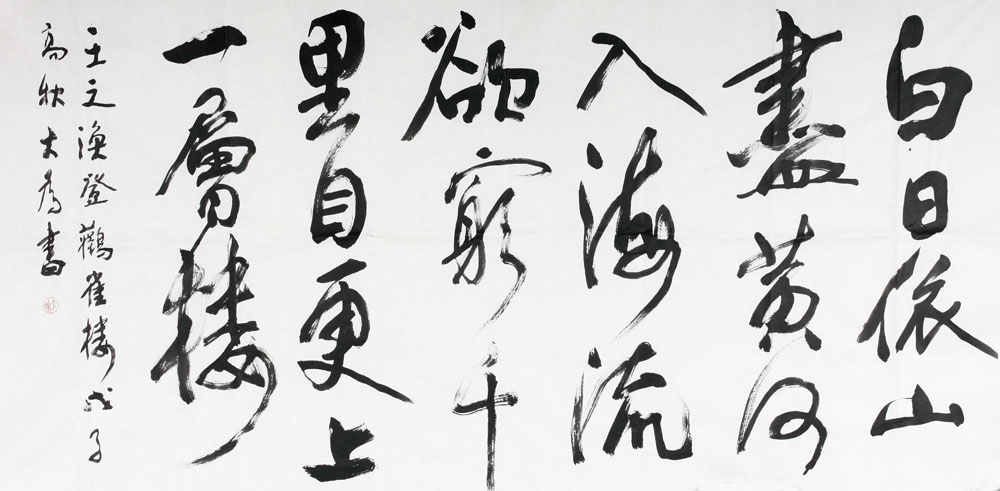 白日依山
盡黄河
入海流
欲窮千
里目更上
一層楼
王之渙登鸛雀楼戊子
高秋大為書